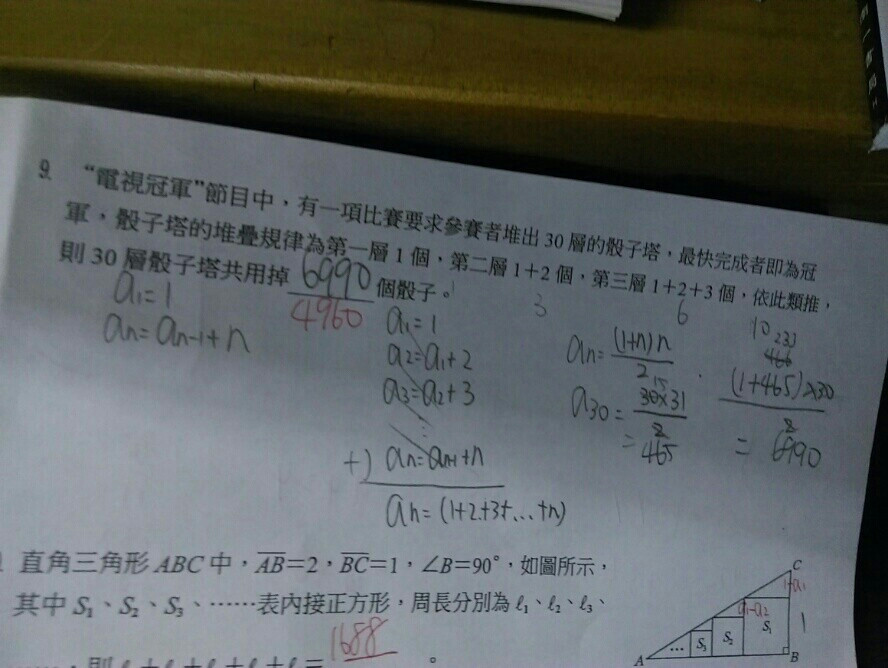 9. “電視冠軍”節目中，有一項比賽要求參賽者堆出 30 層的骰子塔，最快完成者即為冠
軍，骰子塔的堆疊規律為第一層 1 個，第二層 1+2 個，第三層 1+2+3 個，依此類推，
則 30 層骰子塔共用掉 6990 個骰子。
4960
1 3 6 10
a₁=1
aₙ=aₙ₋₁+n
a₁=1
a₂=a₁+2
a₃=a₂+3
⋮
+) aₙ=aₙ₋₁+n
aₙ=(1+2+3+...+n)
aₙ=(1+n)n/2
a₃₀=30×31/2
15
=465
233
466
(1+465)×30/2
=6990
直角三角形 ABC 中，AB=2，BC=1，∠B=90°，如圖所示，
其中 S₁、S₂、S₃、……表內接正方形，周長分別為 ℓ₁、ℓ₂、ℓ₃、
1688
C
1-a₁
a₁-a₂
1
… S₃ S₂ S₁
A B